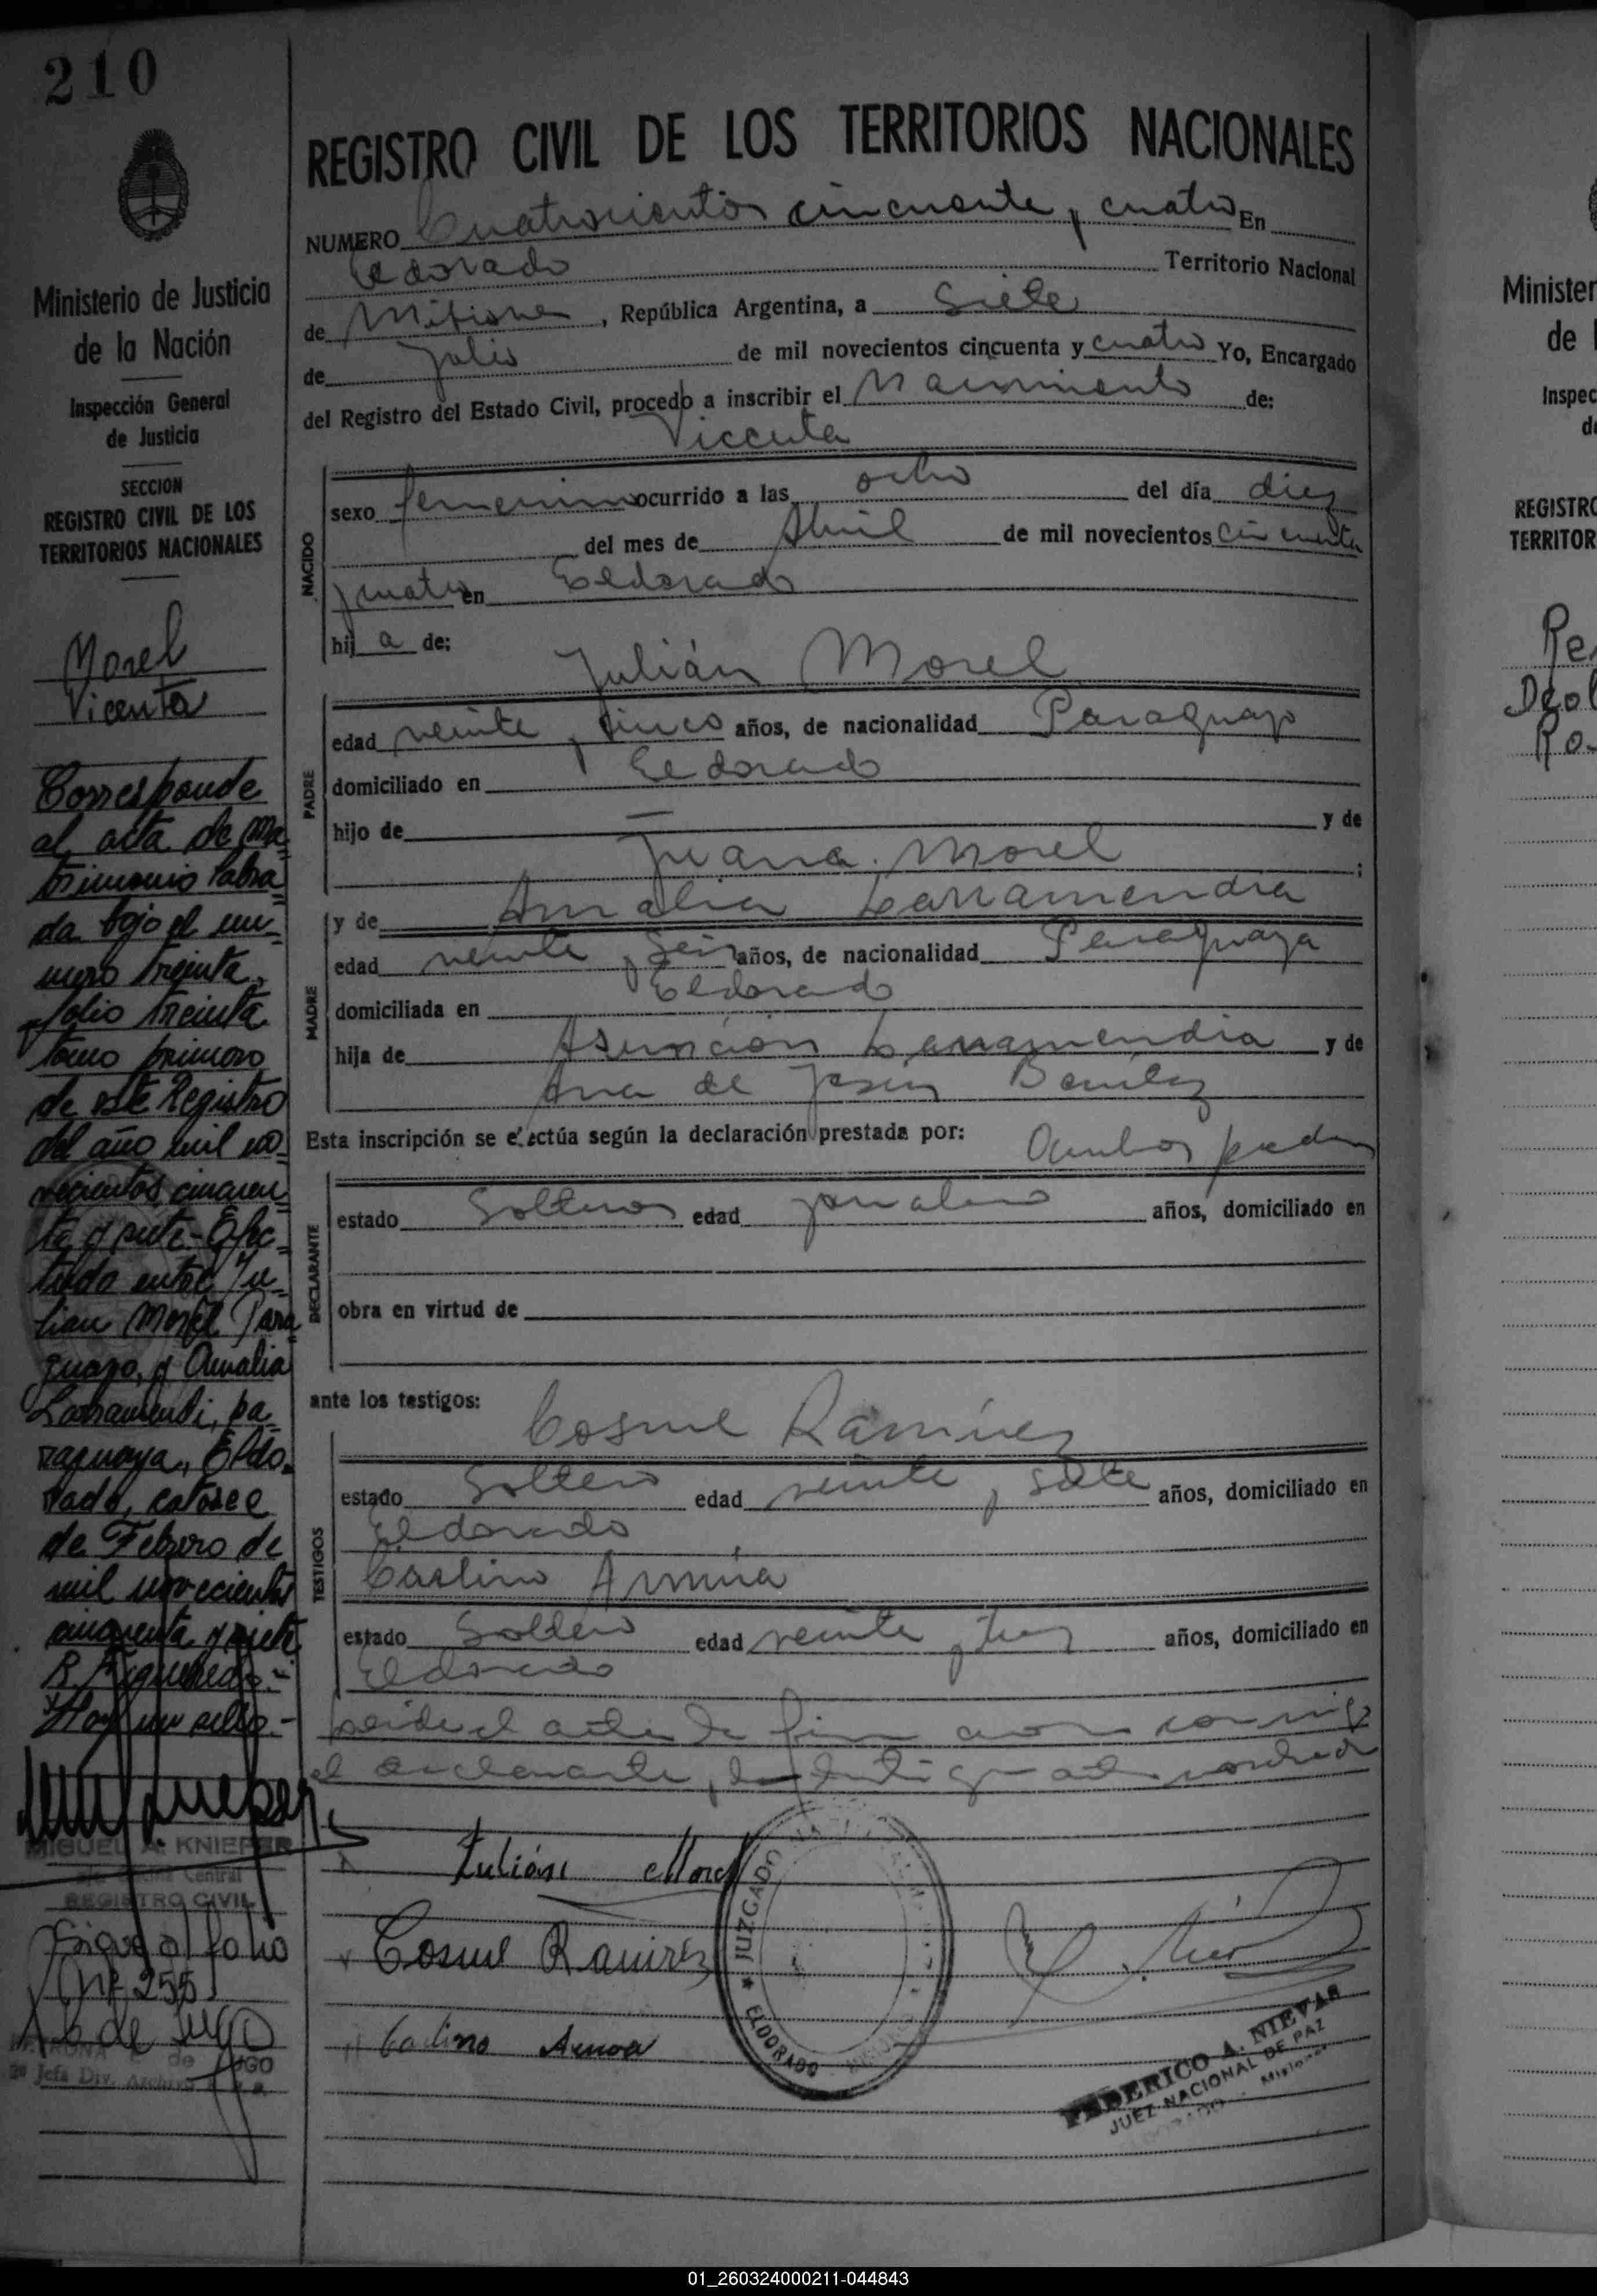 210
Ministerio de Justicia
de la Nación
Inspección General
de Justicia
SECCION
REGISTRO CIVIL DE LOS
TERRITORIOS NACIONALES
Morel
Vicenta
Corresponde
al acta de Ma
trimonio labra
da bajo el nu-
mero treinta,
folio treinta
tomo primero
de este Registro
del año mil no
vecientos cincuen
ta y siete.- Efec-
tuado entre Ju-
lian Morel Para
guayo, y Amalia
Larramendi, pa
raguaya, Eldo-
rado, catorce
de Febrero de
mil novecientos
cincuenta y siete
R. Figueredo.-
Hay un sello.-
MIGUEL A. KNIEPER
Central
REGISTRO CIVIL
Sigue al folio
Nº 255
de Lugo
de LUGO
2º Jefa Div. Archivo
REGISTRO CIVIL DE LOS TERRITORIOS NACIONALES
NUMERO Cuatrocientos cincuenta y cuatro En
Eldorado Territorio Nacional
de Misiones, República Argentina, a Siete
de Julio de mil novecientos cincuenta y cuatro Yo, Encargado
del Registro del Estado Civil, procedo a inscribir el Nacimiento de:
Vicenta
NACIDO
sexo femenino ocurrido a las ocho del día diez
del mes de Abril de mil novecientos cincuenta
y cuatro en Eldorado
hij a de:
Julián Morel
PADRE
edad veinte y cinco años, de nacionalidad Paraguayo
domiciliado en Eldorado
hijo de — y de
Juana Morel ;
y de Amalia Larramendia
MADRE
edad veinte y seis años, de nacionalidad Paraguaya
domiciliada en Eldorado
hija de Asunción Larramendia y de
Ana de Jesús Benítez
Esta inscripción se efectúa según la declaración prestada por: Ambos padres
DECLARANTE
estado Solteros edad jornalero años, domiciliado en
obra en virtud de
ante los testigos:
Cosme Ramírez
TESTIGOS
estado Soltero edad veinte y siete años, domiciliado en
Eldorado
Carlino
estado Soltero edad veinte y tres años, domiciliado en
Eldorado
el acta la firman conmigo
el declarante, los testigos
Julián Morel
Cosme Ramirez
JUZGADO
ELDORADO
FEDERICO A. NIEVAS
JUEZ NACIONAL DE PAZ
Misiones
Minister
de
Inspec
d
REGISTRO
TERRITOR
01_260324000211-044843